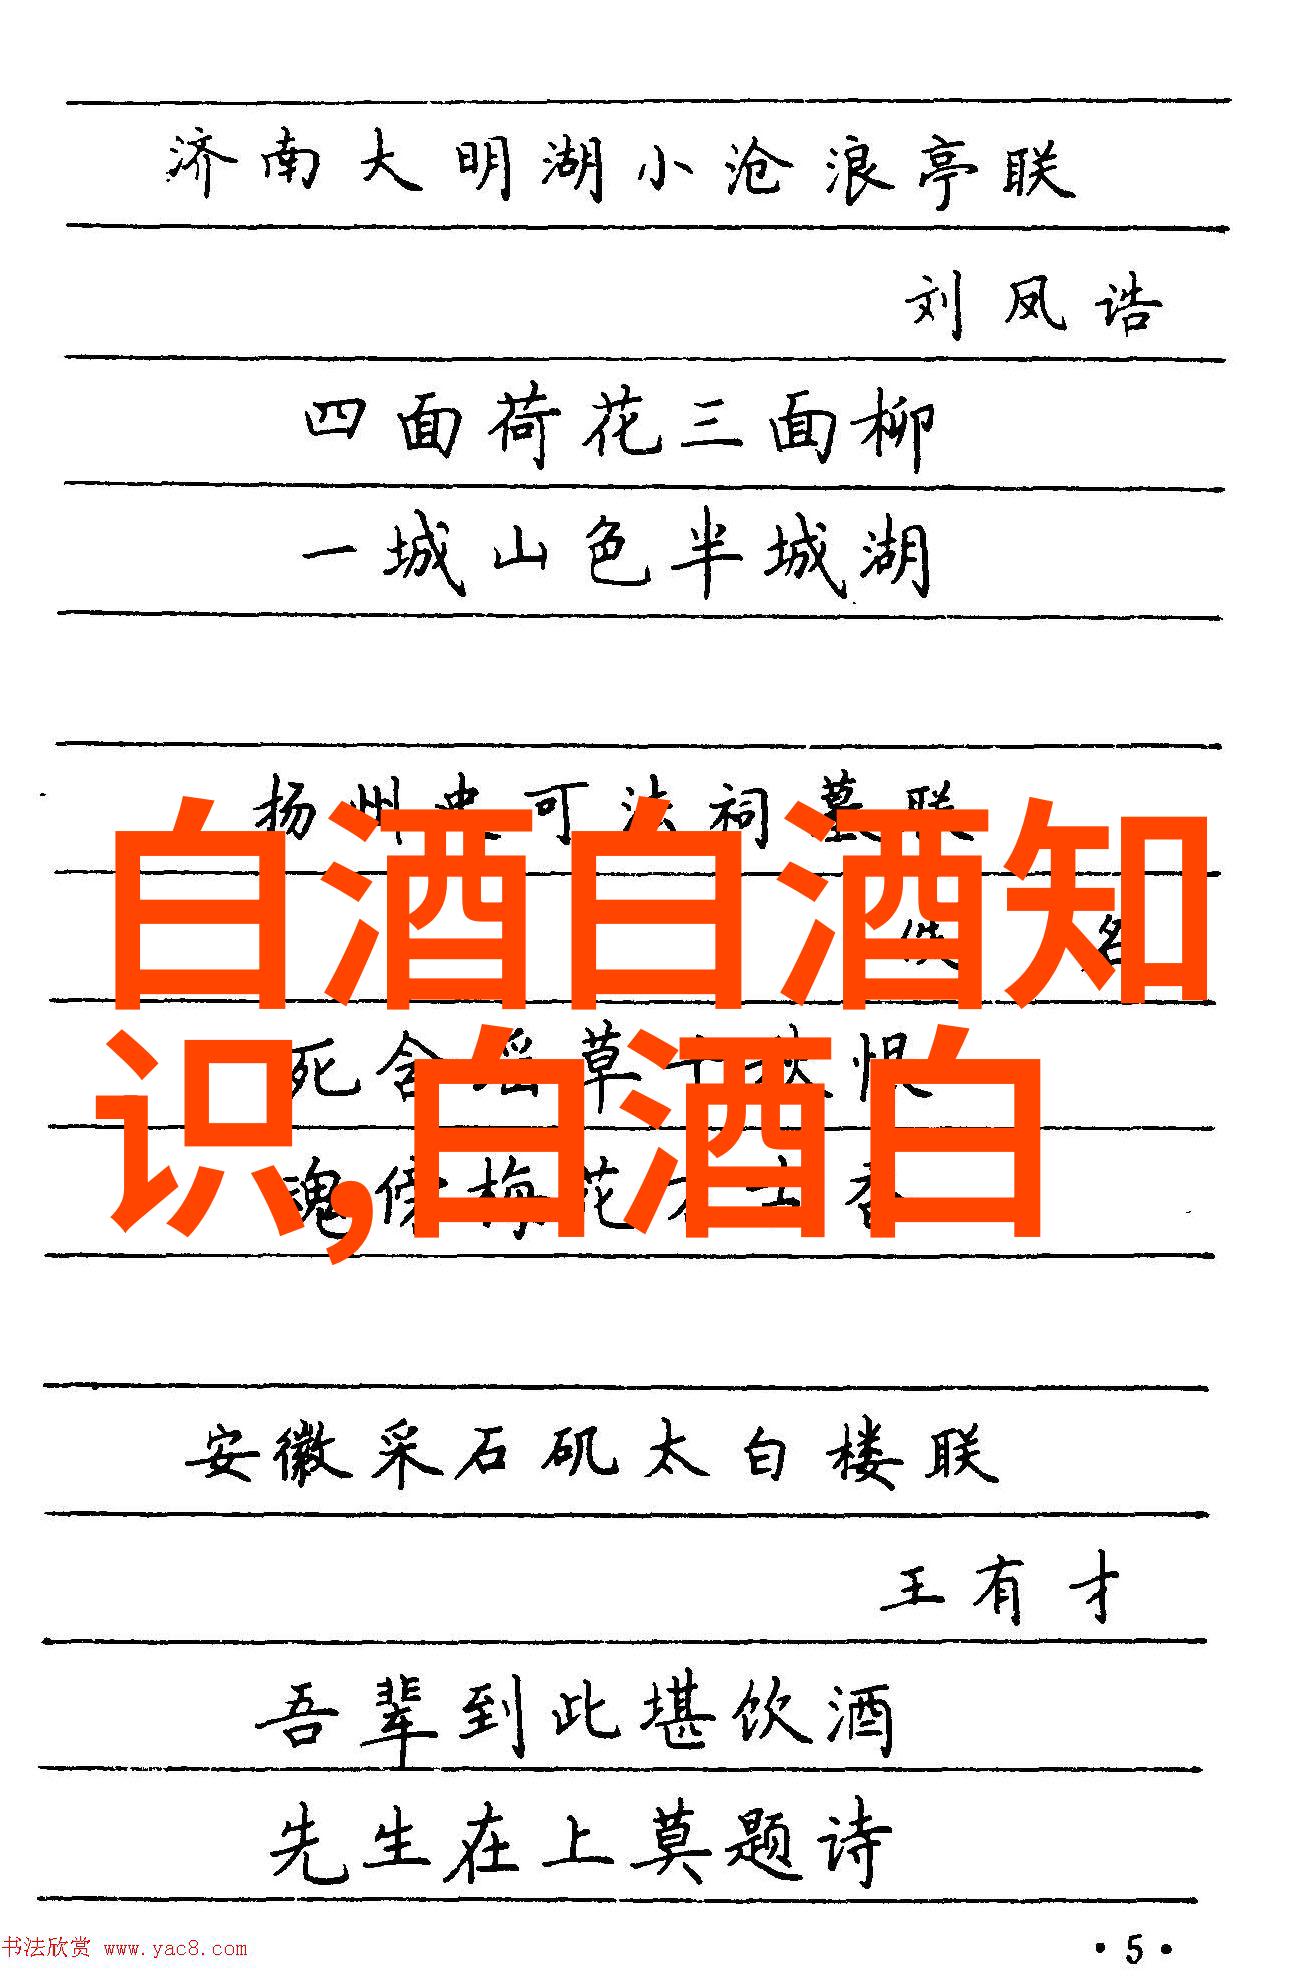 济南大明湖小沧浪亭联
刘凤诰
四面荷花三面柳
一城山色半城湖
扬州史可法祠墓联
佚名
白酒白酒知
死含瑶草秋恨
识,白酒白
魂傍梅花香
安徽采石矶太白楼联
王有才
吾辈到此堪饮酒
先生在上莫题诗
书法欣赏 www.yac8.com
·5·